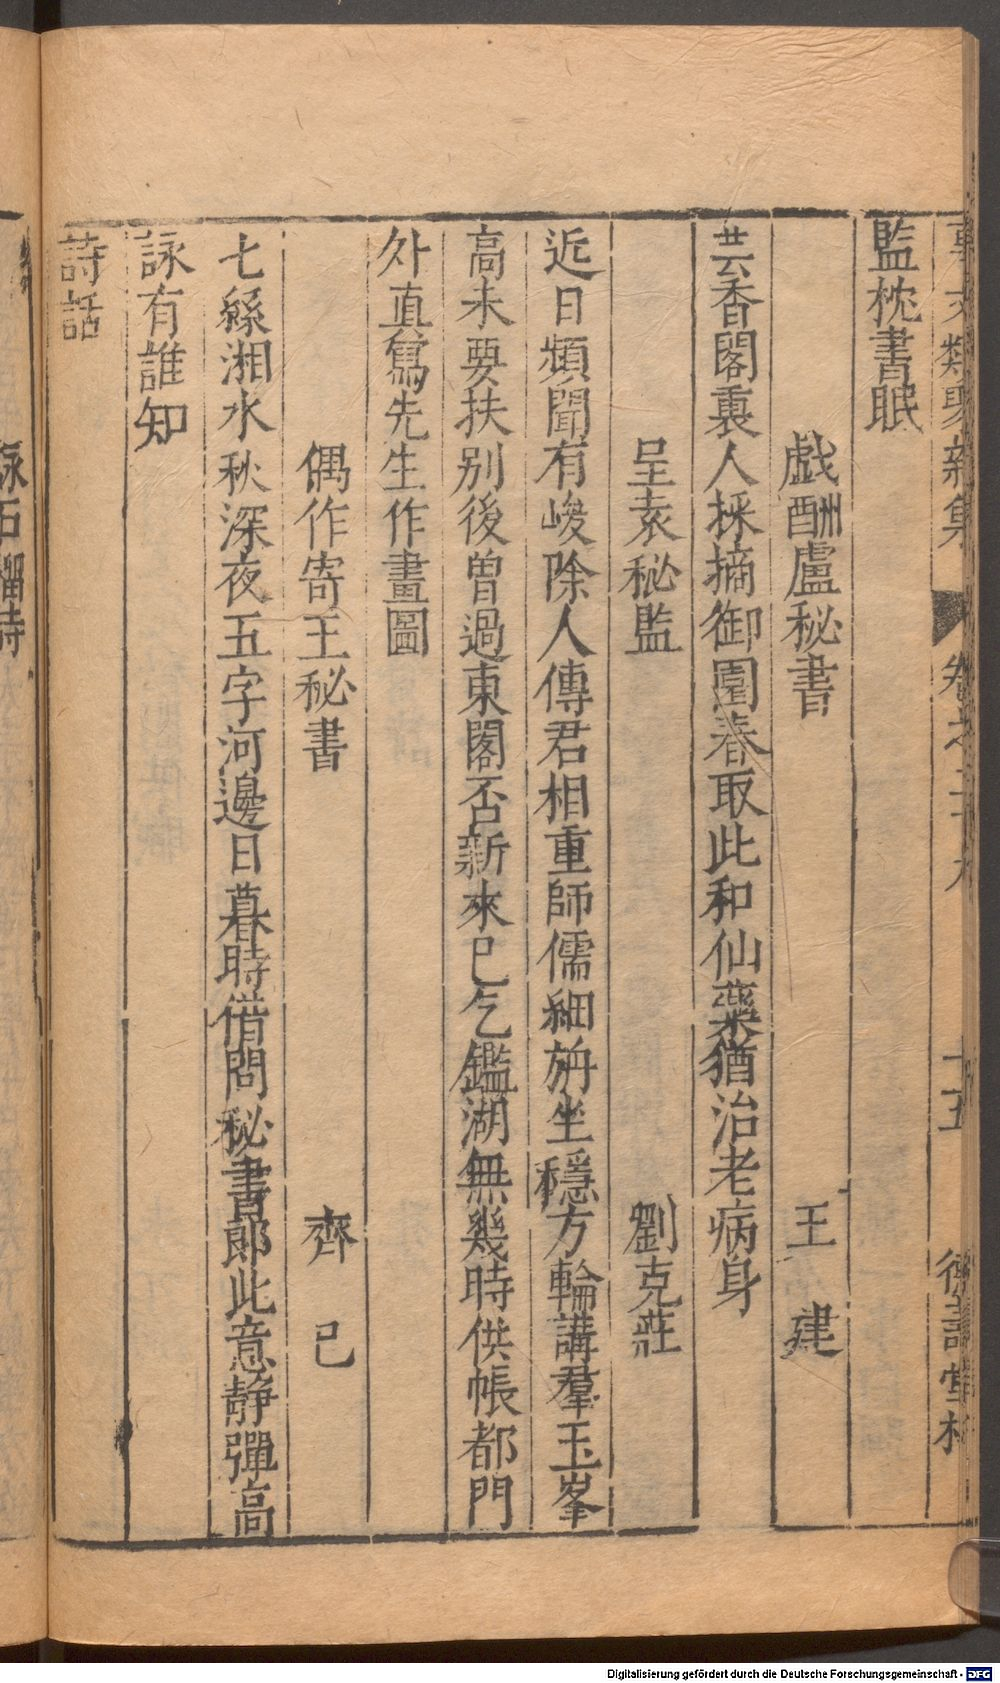 事文類聚新集 卷之二十六 十五 德壽堂梓
監枕書眠
戲酬盧秘書 王建
芸香閣裏人採摘御園春取此和仙藥猶治老病身
呈袁秘監 劉克莊
近日頻聞有峻除人傳君相重師儒細旃坐穩方輪講羣玉峯
高未要扶别後曾過東閣否新來已乞鑑湖無幾時供帳都門
外直寫先生作畫圖
偶作寄王秘書 齊己
七絲湘水秋深夜五字河邊日暮時借問秘書郎此意静彈高
詠有誰知
詩話
詠石榴詩
Digitalisierung gefördert durch die Deutsche Forschungsgemeinschaft - DFG